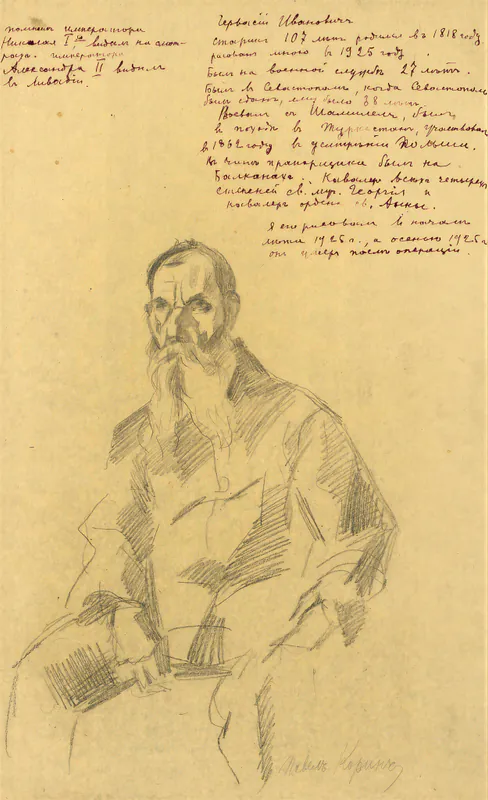 помнитъ императора
Николая I го видѣлъ на смот-
рахъ. императора
Александра II видѣлъ
в Ливадіи.
Гервасій Ивановичъ
старикъ 107 лѣтъ родился въ 1818 году
рисованъ мною в 1925 году
Былъ на военной службѣ 27 лѣтъ.
Былъ в Севастополѣ, когда Севастополь
былъ сданъ, ему было 38 лѣтъ.
Воевалъ съ Шамилемъ, былъ
в походѣ в Туркестанъ, участвовалъ
в 1862 году в усмиреніи Польши.
Въ чинѣ прапорщика былъ на
Балканахъ. Кавалеръ всѣхъ четырехъ
степеней св. муч. Георгія и
кавалеръ ордена св. Анны.
Я его рисовалъ в началѣ
лѣта 1925 г., а осенью 1925 г
онъ умеръ послѣ операціи.
Павелъ Коринъ